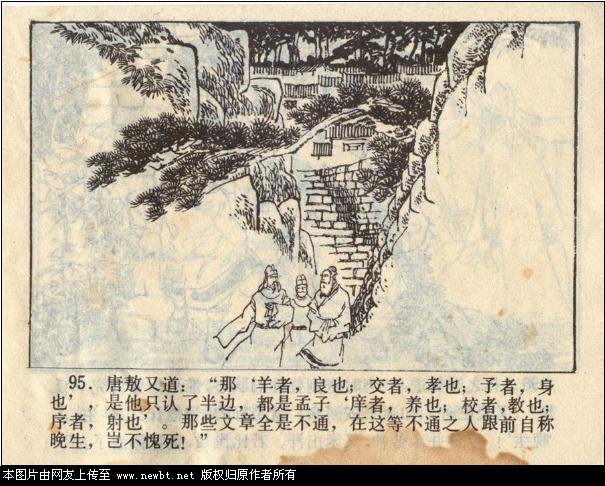 95. 唐敖又道：“那‘羊者，良也；交者，孝也；予者，身
也’，是他只认了半边，都是孟子‘庠者，养也；校者，教也；
序者，射也’。那些文章全是不通，在这等不通之人跟前自称
晚生，岂不愧死！”
本图片由网友上传至 www.newbt.net 版权归原作者所有